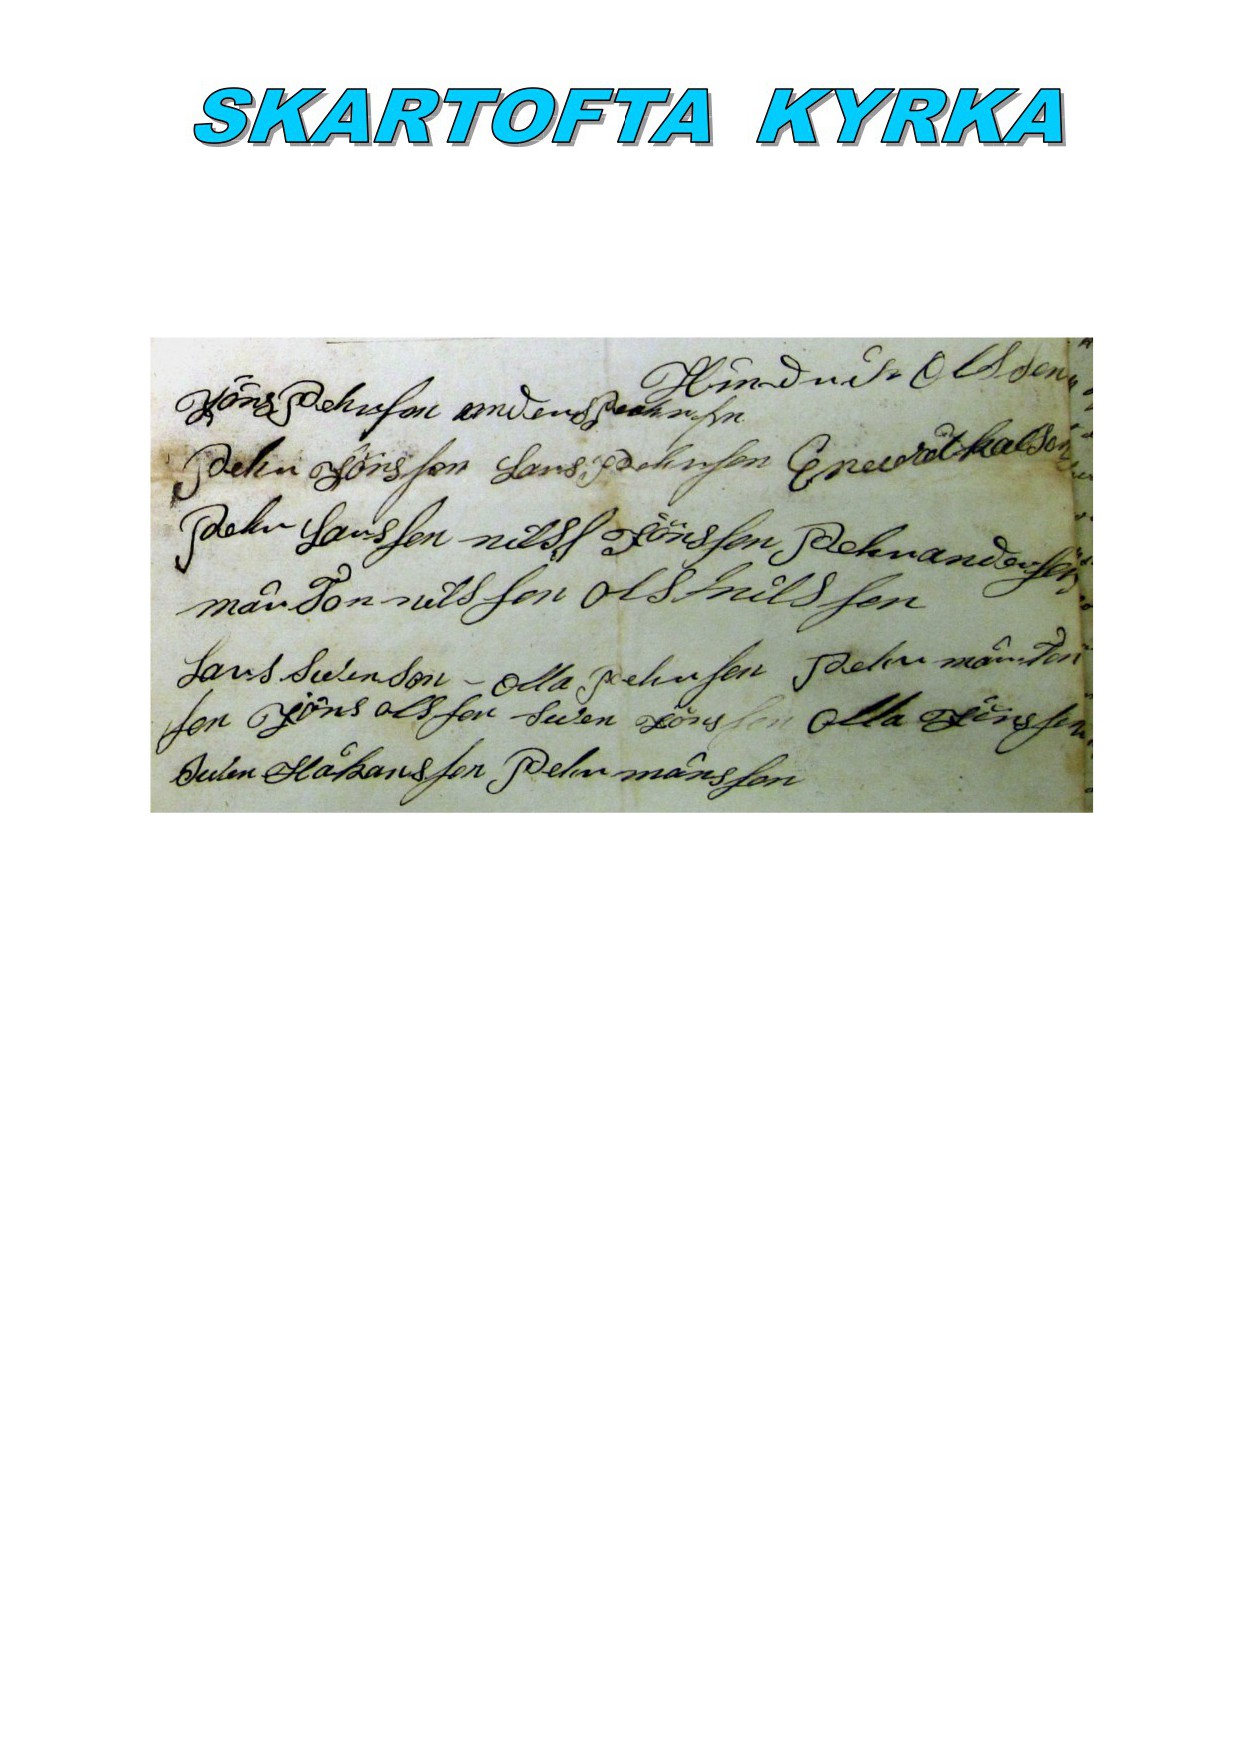 SKARTOFTA KYRKA
Hindrik Olsson
Jöns Pehrson anders Pehrson
Pehr Jönsson Lars Pehrson
Pehr Larsson nilss Jönsson Pehr anderson
mårten nilsson Ols nilsson
Lars Svenson - Olla Pehrson Pehr mårten
son Jöns olsson Sven Jönsson Olla Jönsson
Sven Håkansson Pehr månsson